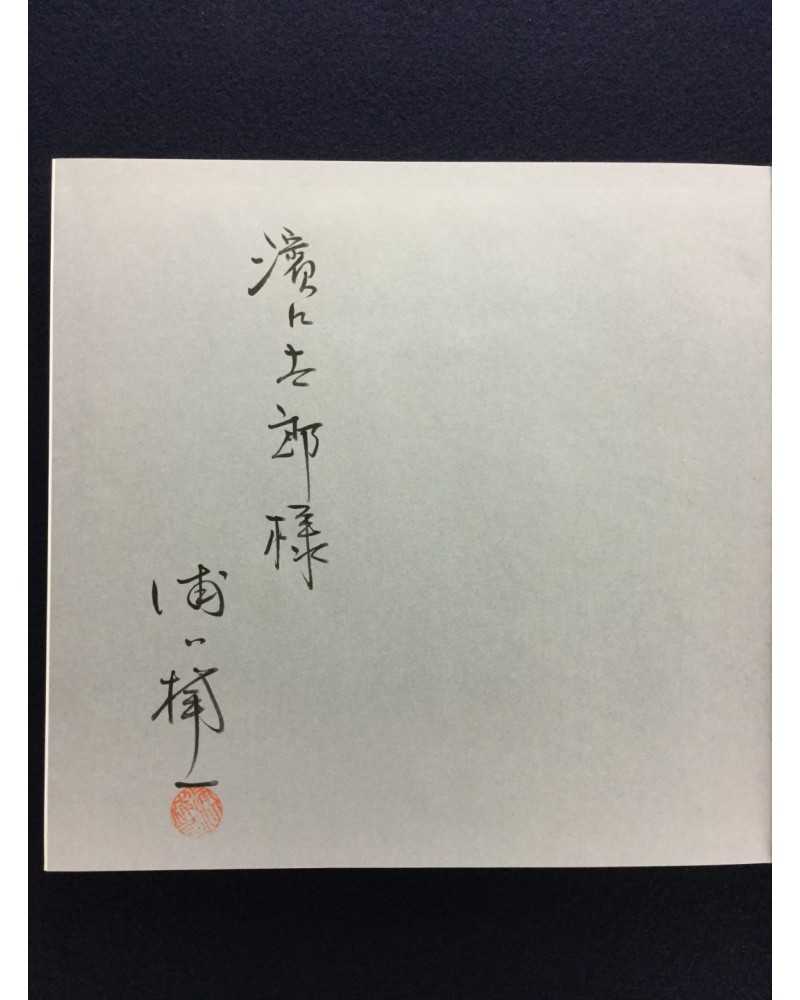 濱口太郎様
浦口楠一